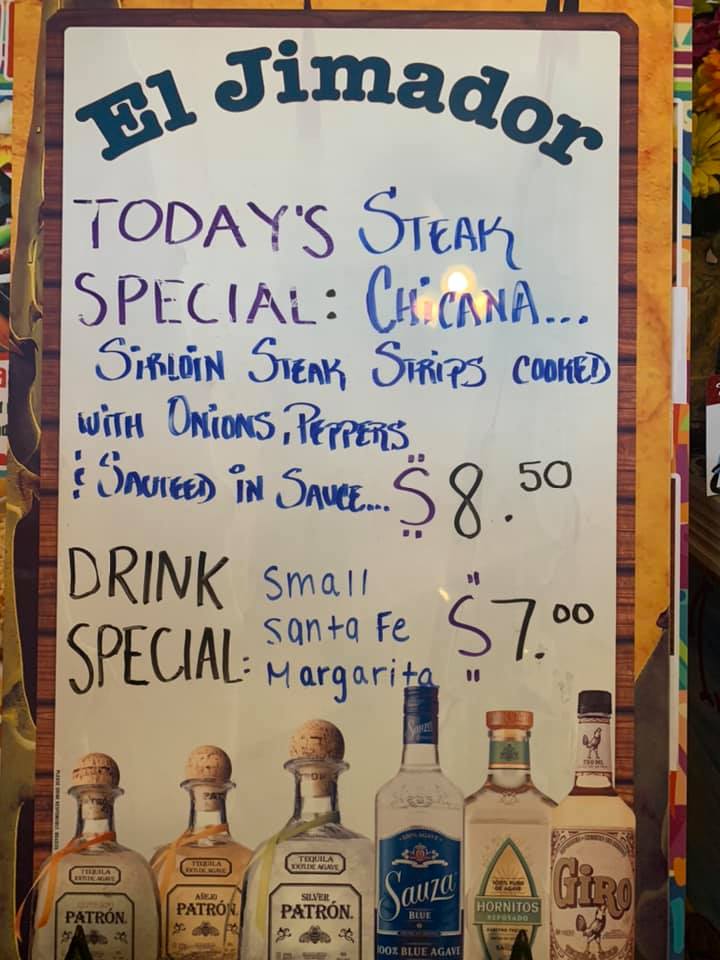 El Jimador
TODAY'S STEAK
SPECIAL: CHICANA...
SIRLOIN STEAK STRIPS COOKED
WITH ONIONS, PEPPERS
& SAUTEED IN SAUCE... $8.50
DRINK Small
SPECIAL: Santa Fe $7.00
Margarita
TEQUILA
100% DE AGAVE
PATRÓN
TEQUILA
100% DE AGAVE
AÑEJO
PATRÓN
TEQUILA
100% DE AGAVE
SILVER
PATRÓN
Sauza
100% AGAVE
Sauza
BLUE
100% BLUE AGAVE
100% PURO
DE AGAVE
HORNITOS
REPOSADO
750 ML
GIRO